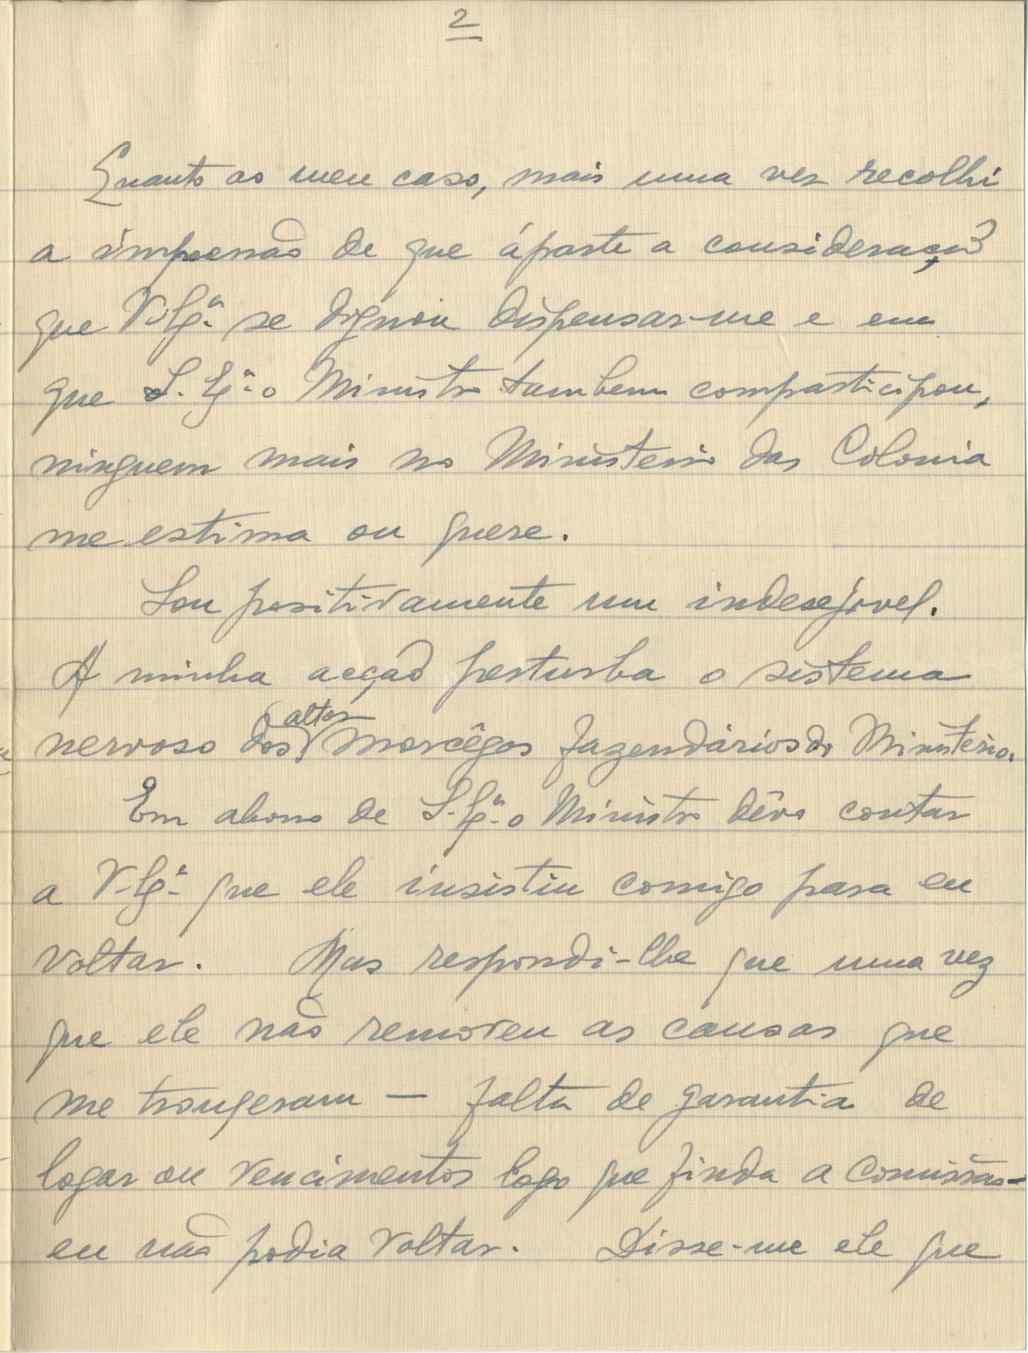 2
Quanto ao meu caso, mais uma vez recolhi
a impressão de que áparte a consideração
que V. Exª. se dignou dispensar-me e em
que S. Exª. o Ministro tambem comparticipou,
ninguem mais no Ministerio das Colonia
me estima ou quere.
Sou positivamente um indesejavel.
A minha acção perturba o sistema
nervoso dos altos morcêgos fazendários do Ministério.
Em abono de S. Exª. o Ministro dêvo contar
a V. Exª. que ele insistiu comigo para eu
voltar. Mas respondi-lhe que uma vez
que ele não removeu as causas que
me trougeram — falta de garantia de
logar ou vencimentos logo que finda a comissão—
eu não podia voltar. Disse-me ele que